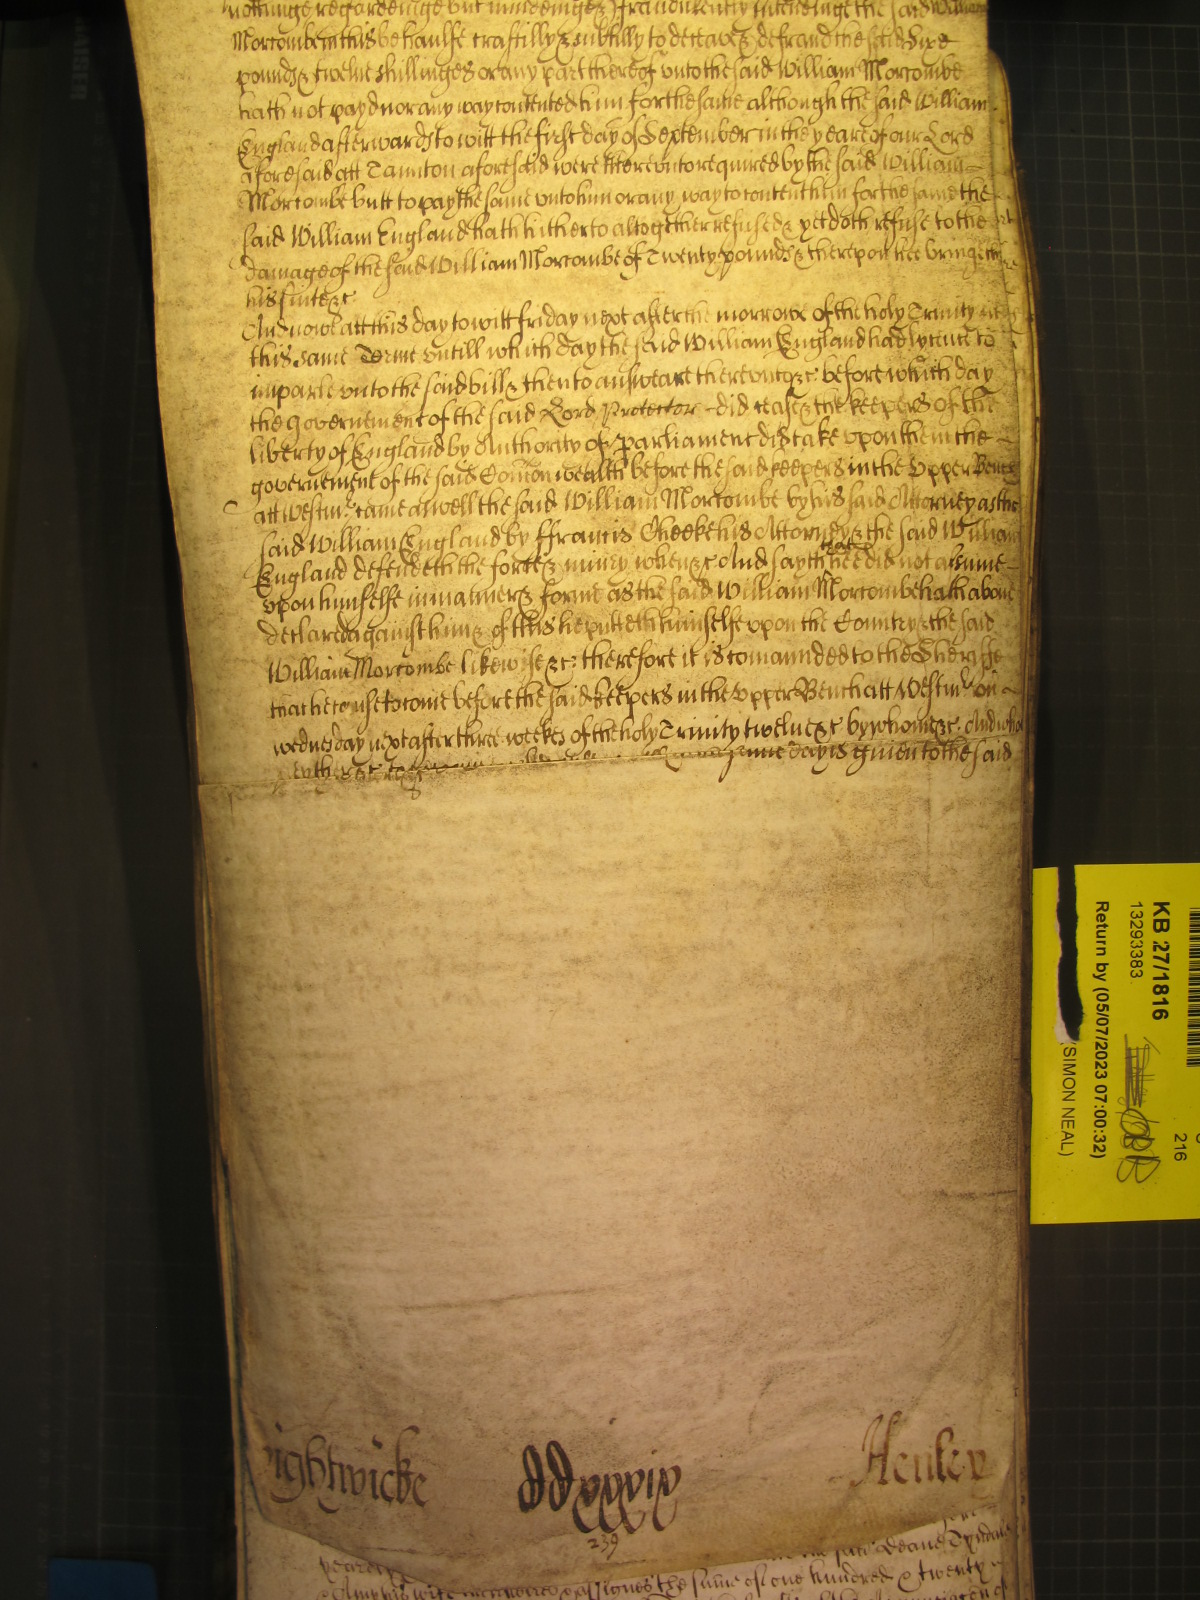 nothinge regardeinge but mindeinge & fraudulently intendinge the said William
Morcombe in this behaulfe craftilly & subtilly to deceave & defraud the said Sixe
pounds & twelve shillinges or any part thereof unto the said William Morcombe
hath not payd nor any way contented him for the same although the said William
England afterwards to witt the first day of September in the yeare of our Lord
aforesaid att Taunton aforesaid were thereunto required by the said William
Morcombe butt to pay the same unto him or any way to content him for the same the
said William England hath hitherto altogether refused & yet doth refuse to the
damage of the said William Morcombe of Twenty pounds & thereupon hee bringeth
his suite &c
And nowe att this day to witt friday next after the morrowe of the holy Trinity
this same Terme untill which day the said William England had lycence to
imparle unto the said bill & then to answeare thereunto &c before which day
the Governement of the said Lord Protector did cease & the keepers of the
liberty of England by Authority of parliament did take upon them the
governement of the said Comon wealth before the said keepers in the Upper Bench
att Westmr came aswell the said William Morcombe by his said Attorney as the
said William England by ffrancis Cheeke his Attorney & the said William
England defendeth the force & iniury when &c And sayth that hee did not assume
upon himselfe in manner & forme as the said William Morcombe hath above
declared against him & of this he putteth himselfe upon the Country & the said
William Morcombe likewise &c therefore it is comaunded to the Sheriffe
that he cause to come before the said keepers in the Upper Bench att Westmr on
wednesday next after three weekes of the holy Trinity twelve &c by whome &c And who
neyther &c day is given to the said
ightwicke
ccxxxix
Henley
239
said Deane
yeares
wife assignes the summe of one hundred & twenty
KB 27/1816
13293383
Return by (05/07/2023 07:00:32)
(SIMON NEAL)
216